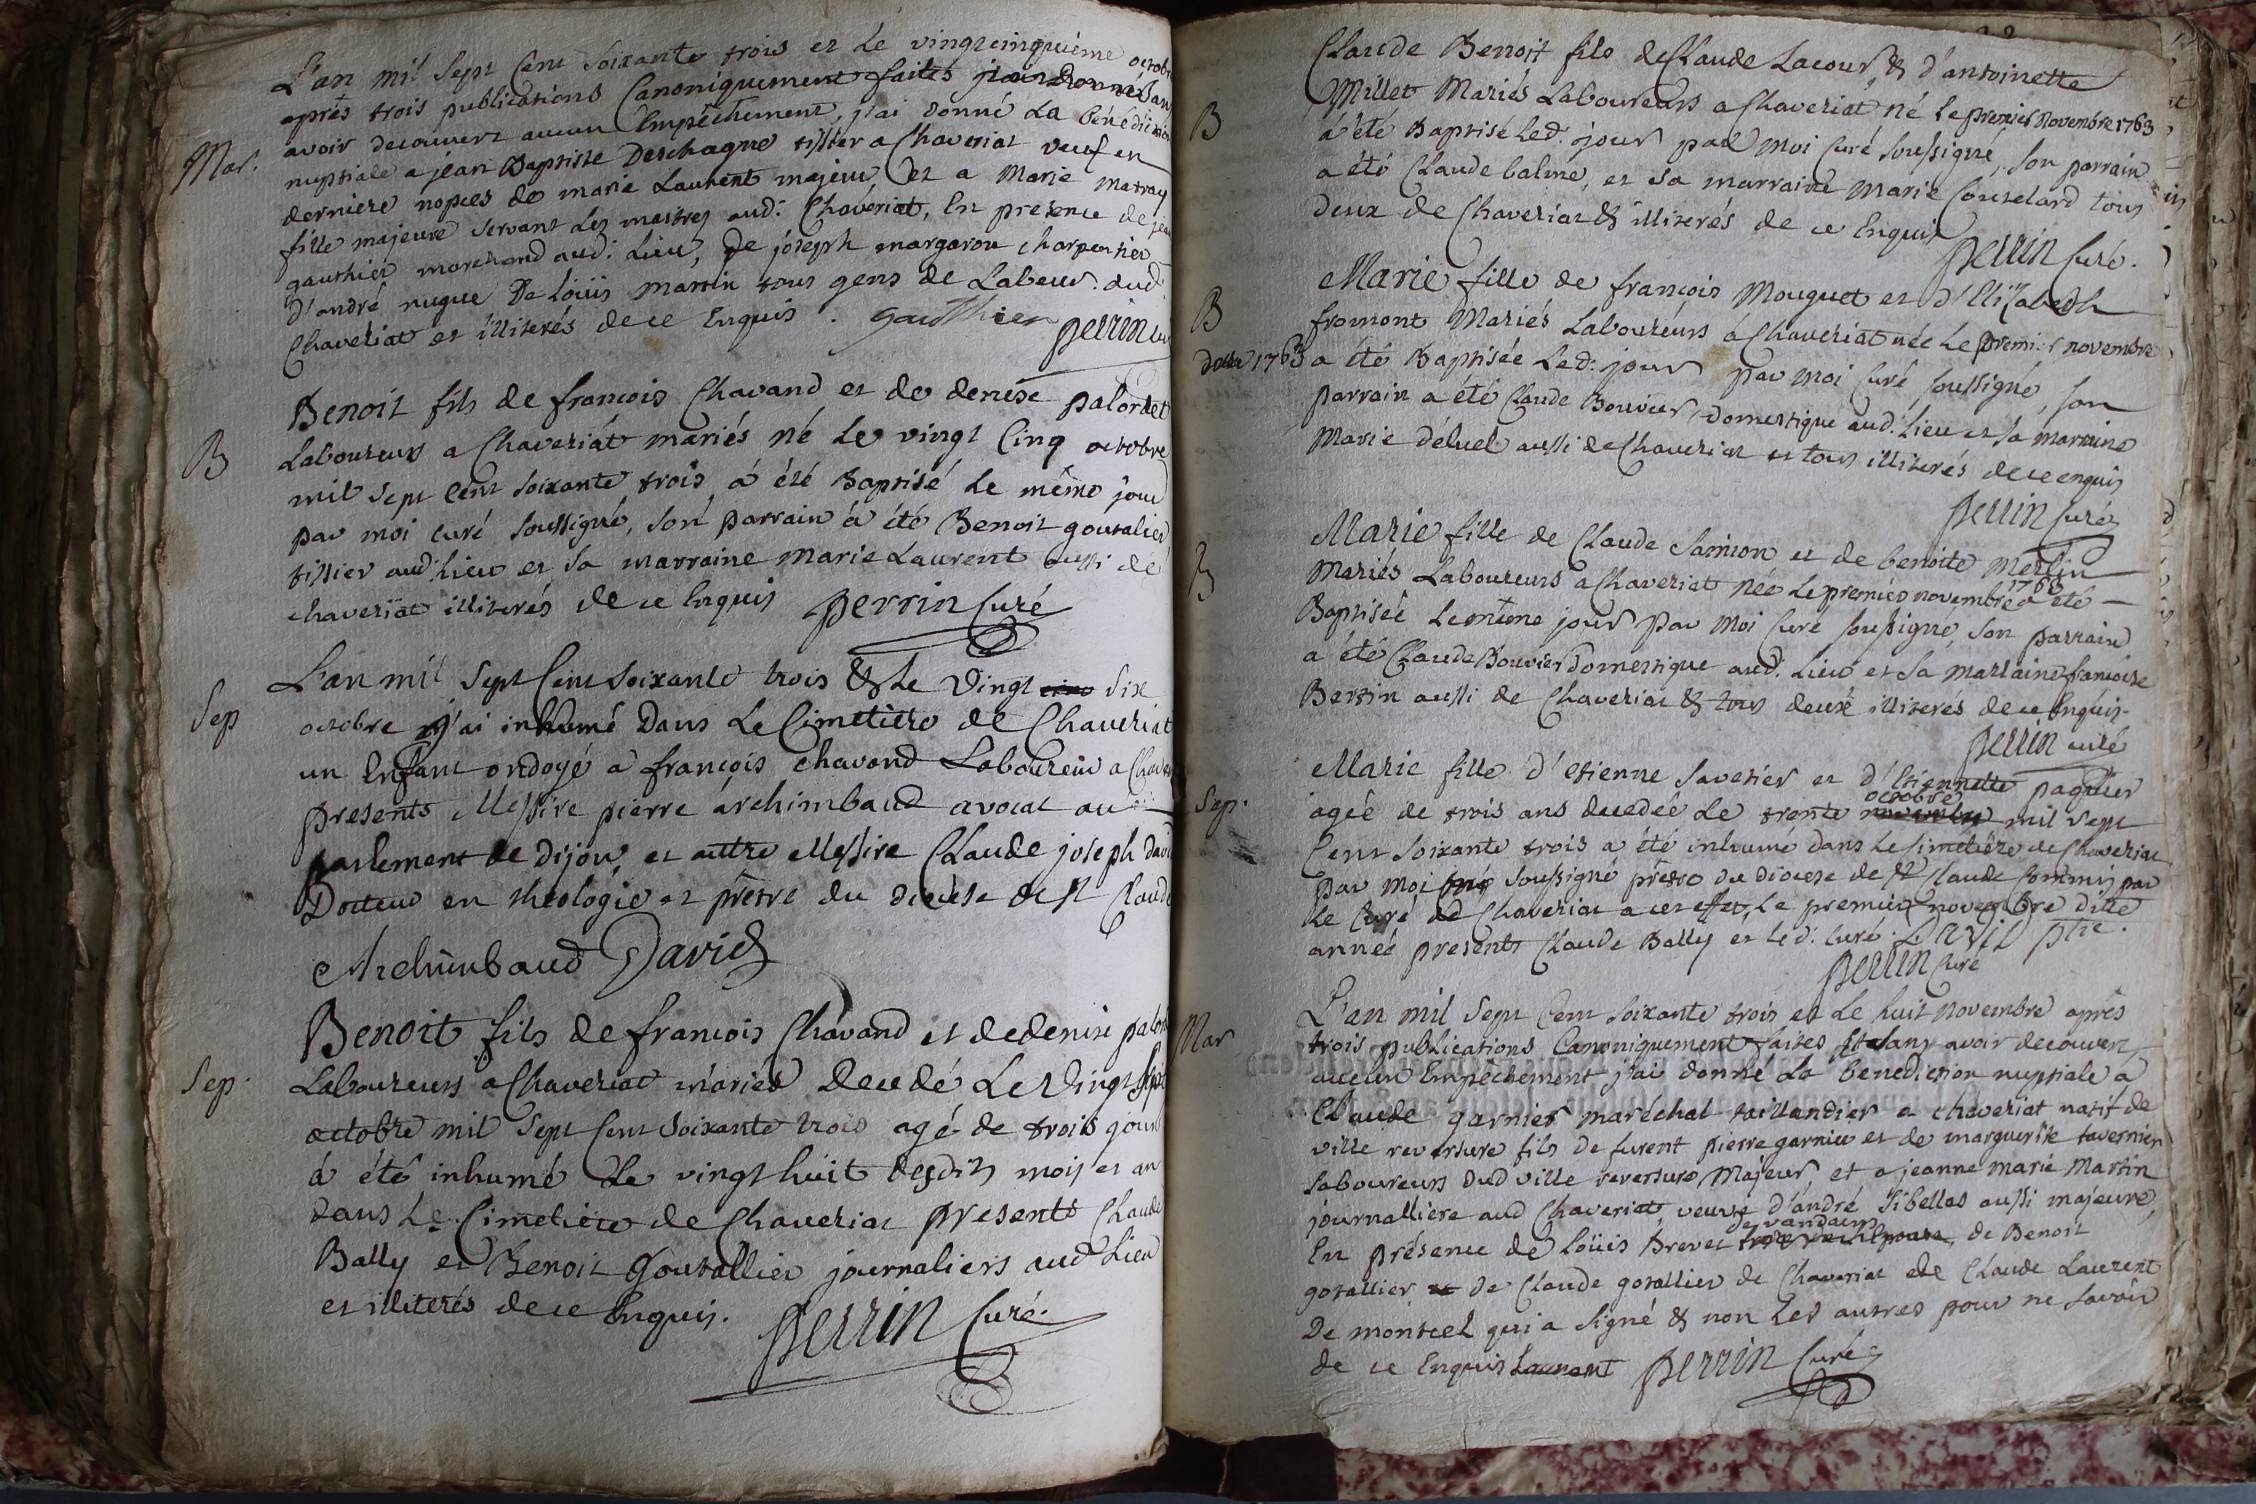 L'an mil sept Cent soixante trois et le vingtcinquième octobre
après trois publications Canoniquement faites j'ai donné sans
avoir decouvert aucun Empêchement, j'ai donné la bénédiction
Mar. nuptiale a jean Baptiste Deschagne tissier a Chaveriat veuf en
derniere nopces de marie Laurent majeur et a Marie matray
fille majeure servant les maitres aud: Chaveriat, En presence de jean
gauthier marchand aud: Lieu, De joseph margaron charpentier
d'andré nugue De loüis martin tous gens de Labeur dud
Chaveriat et illiterés de ce Enquis. gautthier
perrin curé
Benoit fils de francois Chavand et de denise palordet
B Laboureurs a Chaveriat mariés né le vingt Cinq octobre
mil sept Cent soixante trois à été Baptisé le même jour
par moi curé soussigné, son parrain à été Benoit goutalier
tissier aud: lieu et sa marraine Marie Laurent aussi de
chaveriat illiterés de ce Enquis perrin Curé
L'an mil sept Cent soixante trois & le vingt cinq six
Sep octobre j'ai inhumé Dans Le Cimetiere de Chaveriat
un Enfant ondoyé à françois chavand Laboureur a Chaver
presents Messire pierre archimbaud avocat au
parlement de Dijon, et autre Messire Claude joseph david
Docteur en theologie et prêtre du diocèse de St Claude
Archimbaud David
Benoit fils de francois Chavand et de denise palor
Sep. Laboureurs a Chaveriat mariés Decedé Le Vingt Sept
octobre mil sept Cent soixante trois agé de trois jours
à été inhumé Le vingt huit desdits mois et an
dans Le Cimetiere de Chaveriat presents Claude
Bally et Benoit goutallier journaliers aud Lieu
et illiterés de ce Enquis. perrin Curé.
Claude Benoit fils de Claude Lacour & d'antoinette
Millet Mariés Laboureurs a Chaveriat né le premier Novembre 1763
B à été Baptisé led: jour par moi Curé soussigné, son parrain
a été Claude balme, et sa marraine Marie Coutelard tous
deux de Chaveriat & illiterés de ce Enquis
perrin Curé.
Marie fille de francois Mouguet et d'Elizabeth
B fromont Mariés Laboureurs à Chaveriat née le premier novembre
1763 a été Baptisée led: jour par moi Curé soussigné, son
parrain a été Claude Bouvier Domestique aud: lieu et sa marraine
Marie déluel aussi de Chaveriat et tous illiterés de ce enquis
perrin Curé
Marie fille de Claude Samion et de benoite merlin
B Mariés Laboureurs a Chaveriat née le premier novembre 1763 a été
Baptisée le même jour par moi Curé soussigné, son parrain
a été Claude Bouvier Domestique aud: lieu et sa marraine francoise
Bertin aussi de Chaveriat & tous deux illiterés de ce Enquis.
perrin curé
Marie fille d'etienne Savetier et d'Etiennette paquier
Sep. agée de trois ans decedeé le trente novembre octobre mil sept
Cent soixante trois a été inhumé dans le simetière de Chaveriat
par moi curé soussigné prêtre du diocese de St Claude Commis par
le Curé de Chaveriat a cet effet, le premier novembre ditte
année presents Claude Bally et led: curé. David ptre.
perrin Curé
Mar L'an mil sept Cent soixante trois et le huit novembre après
trois publications Canoniquement faites et sans avoir decouvert
aucun Empêchement j'ai donné la benediction nuptiale à
Claude garnier maréchal taillandier a chaveriat natif de
ville reversure fils de furent pierre garnier et de marguerite tavernier
laboureurs dud ville reversure Majeur, et a jeanne marie Martin
journalliere aud Chaveriat, veuve d'andré Sibellas aussi majeure,
En présence de Loüis brevet de vandains, de Benoit
gotallier et de Claude gotallier de Chaveriat de Claude Laurent
De montcel qui a signé & non les autres pour ne savoir
de ce Enquis Laurent perrin Curé